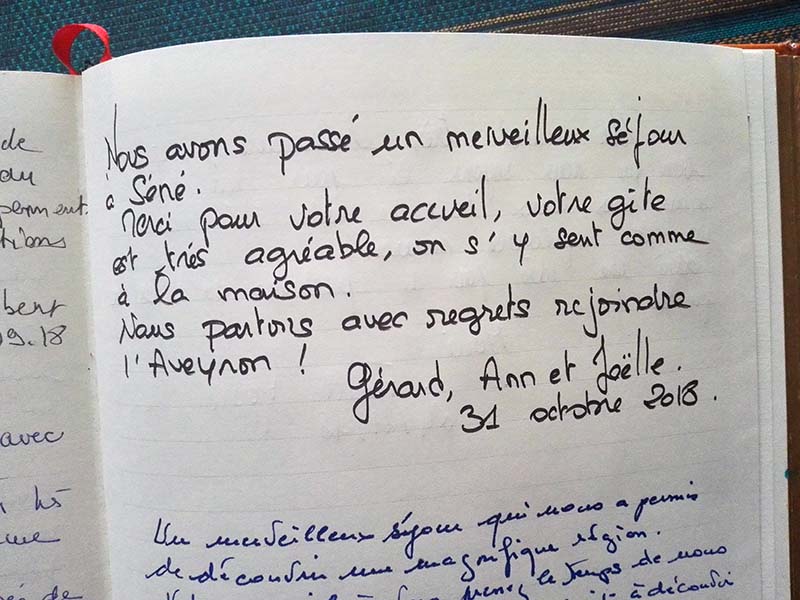 de
au
ions
bert
09.18
avec
Nous avons passé un merveilleux séjour
à Séné.
Merci pour votre accueil, votre gîte
est trés agréable, on s'y sent comme
à la maison.
Nous partons avec regrets rejoindre
l'Aveyron !
Gérard, Ann et Joëlle.
31 octobre 2018.
Un merveilleux séjour qui nous a permis
de découvrir une magnifique région.
le temps de nous
à découvrir